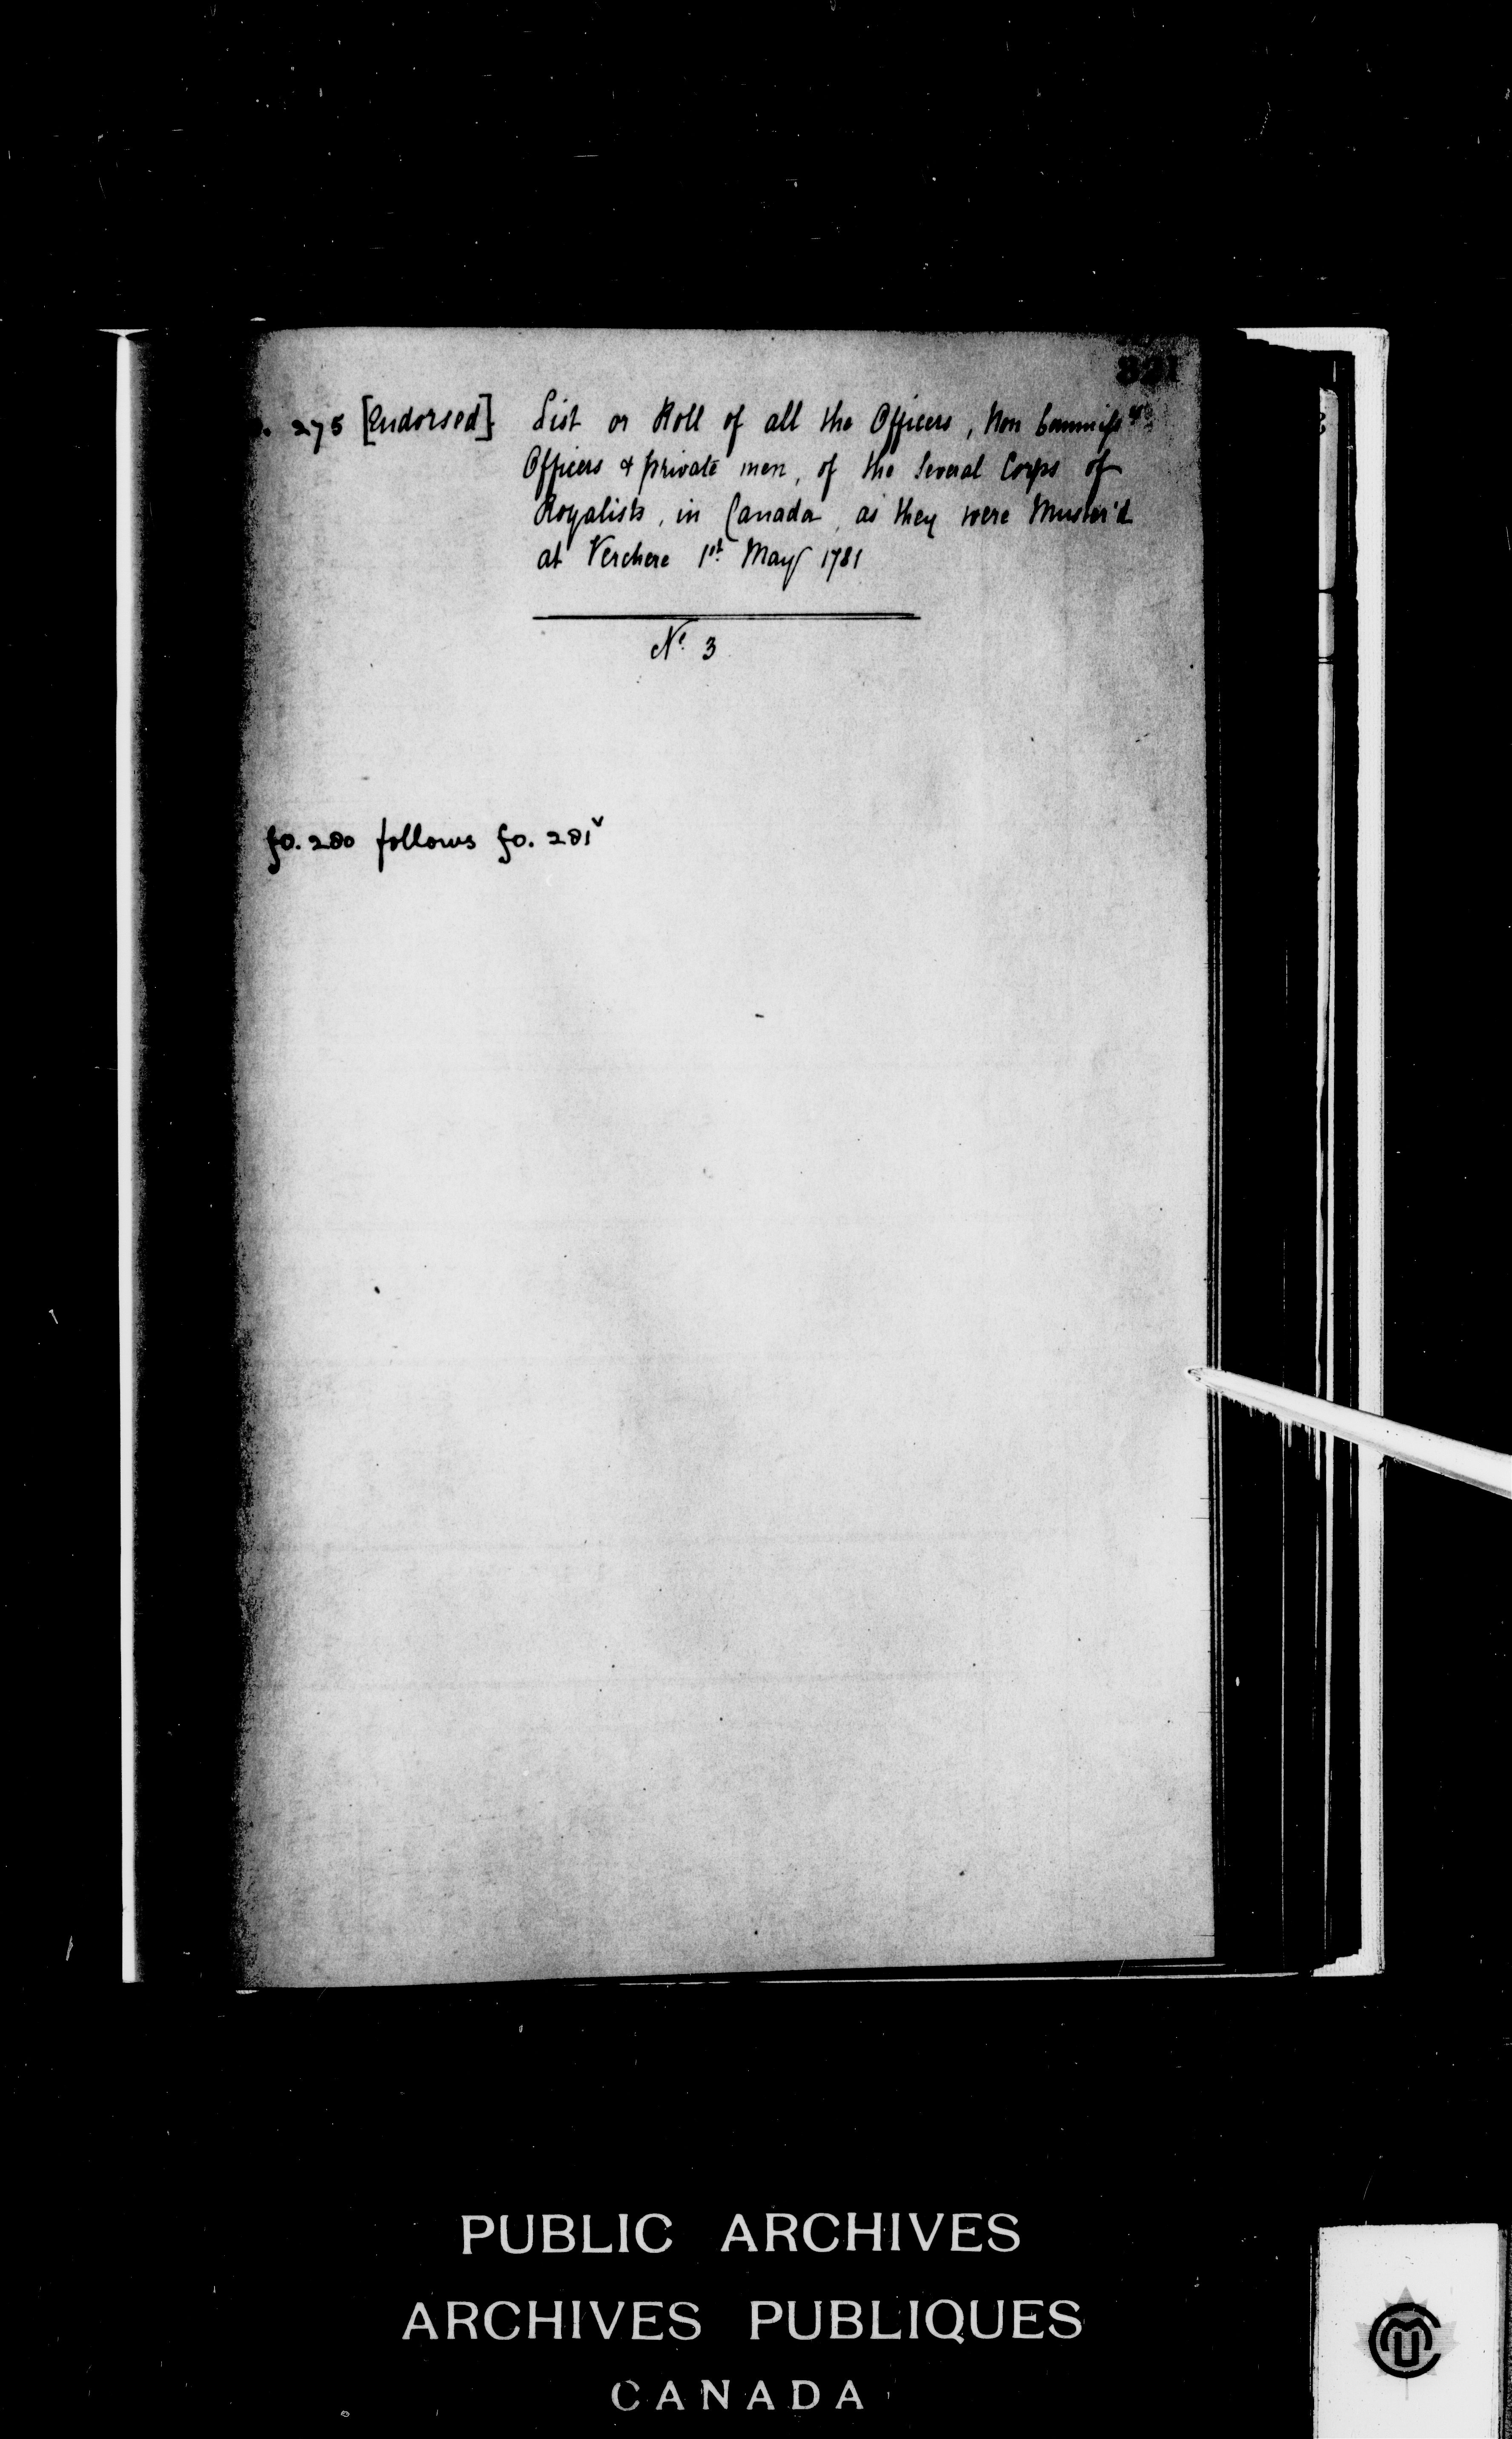 321
275 [Endorsed] List or Roll of all the Officers, Non Commissd
Officers & private men, of the several Corps of
Royalists, in Canada, as they were Muster'd
at Verchere 1st May 1781
No 3
fo. 280 follows fo. 281v
PUBLIC ARCHIVES
ARCHIVES PUBLIQUES
CANADA